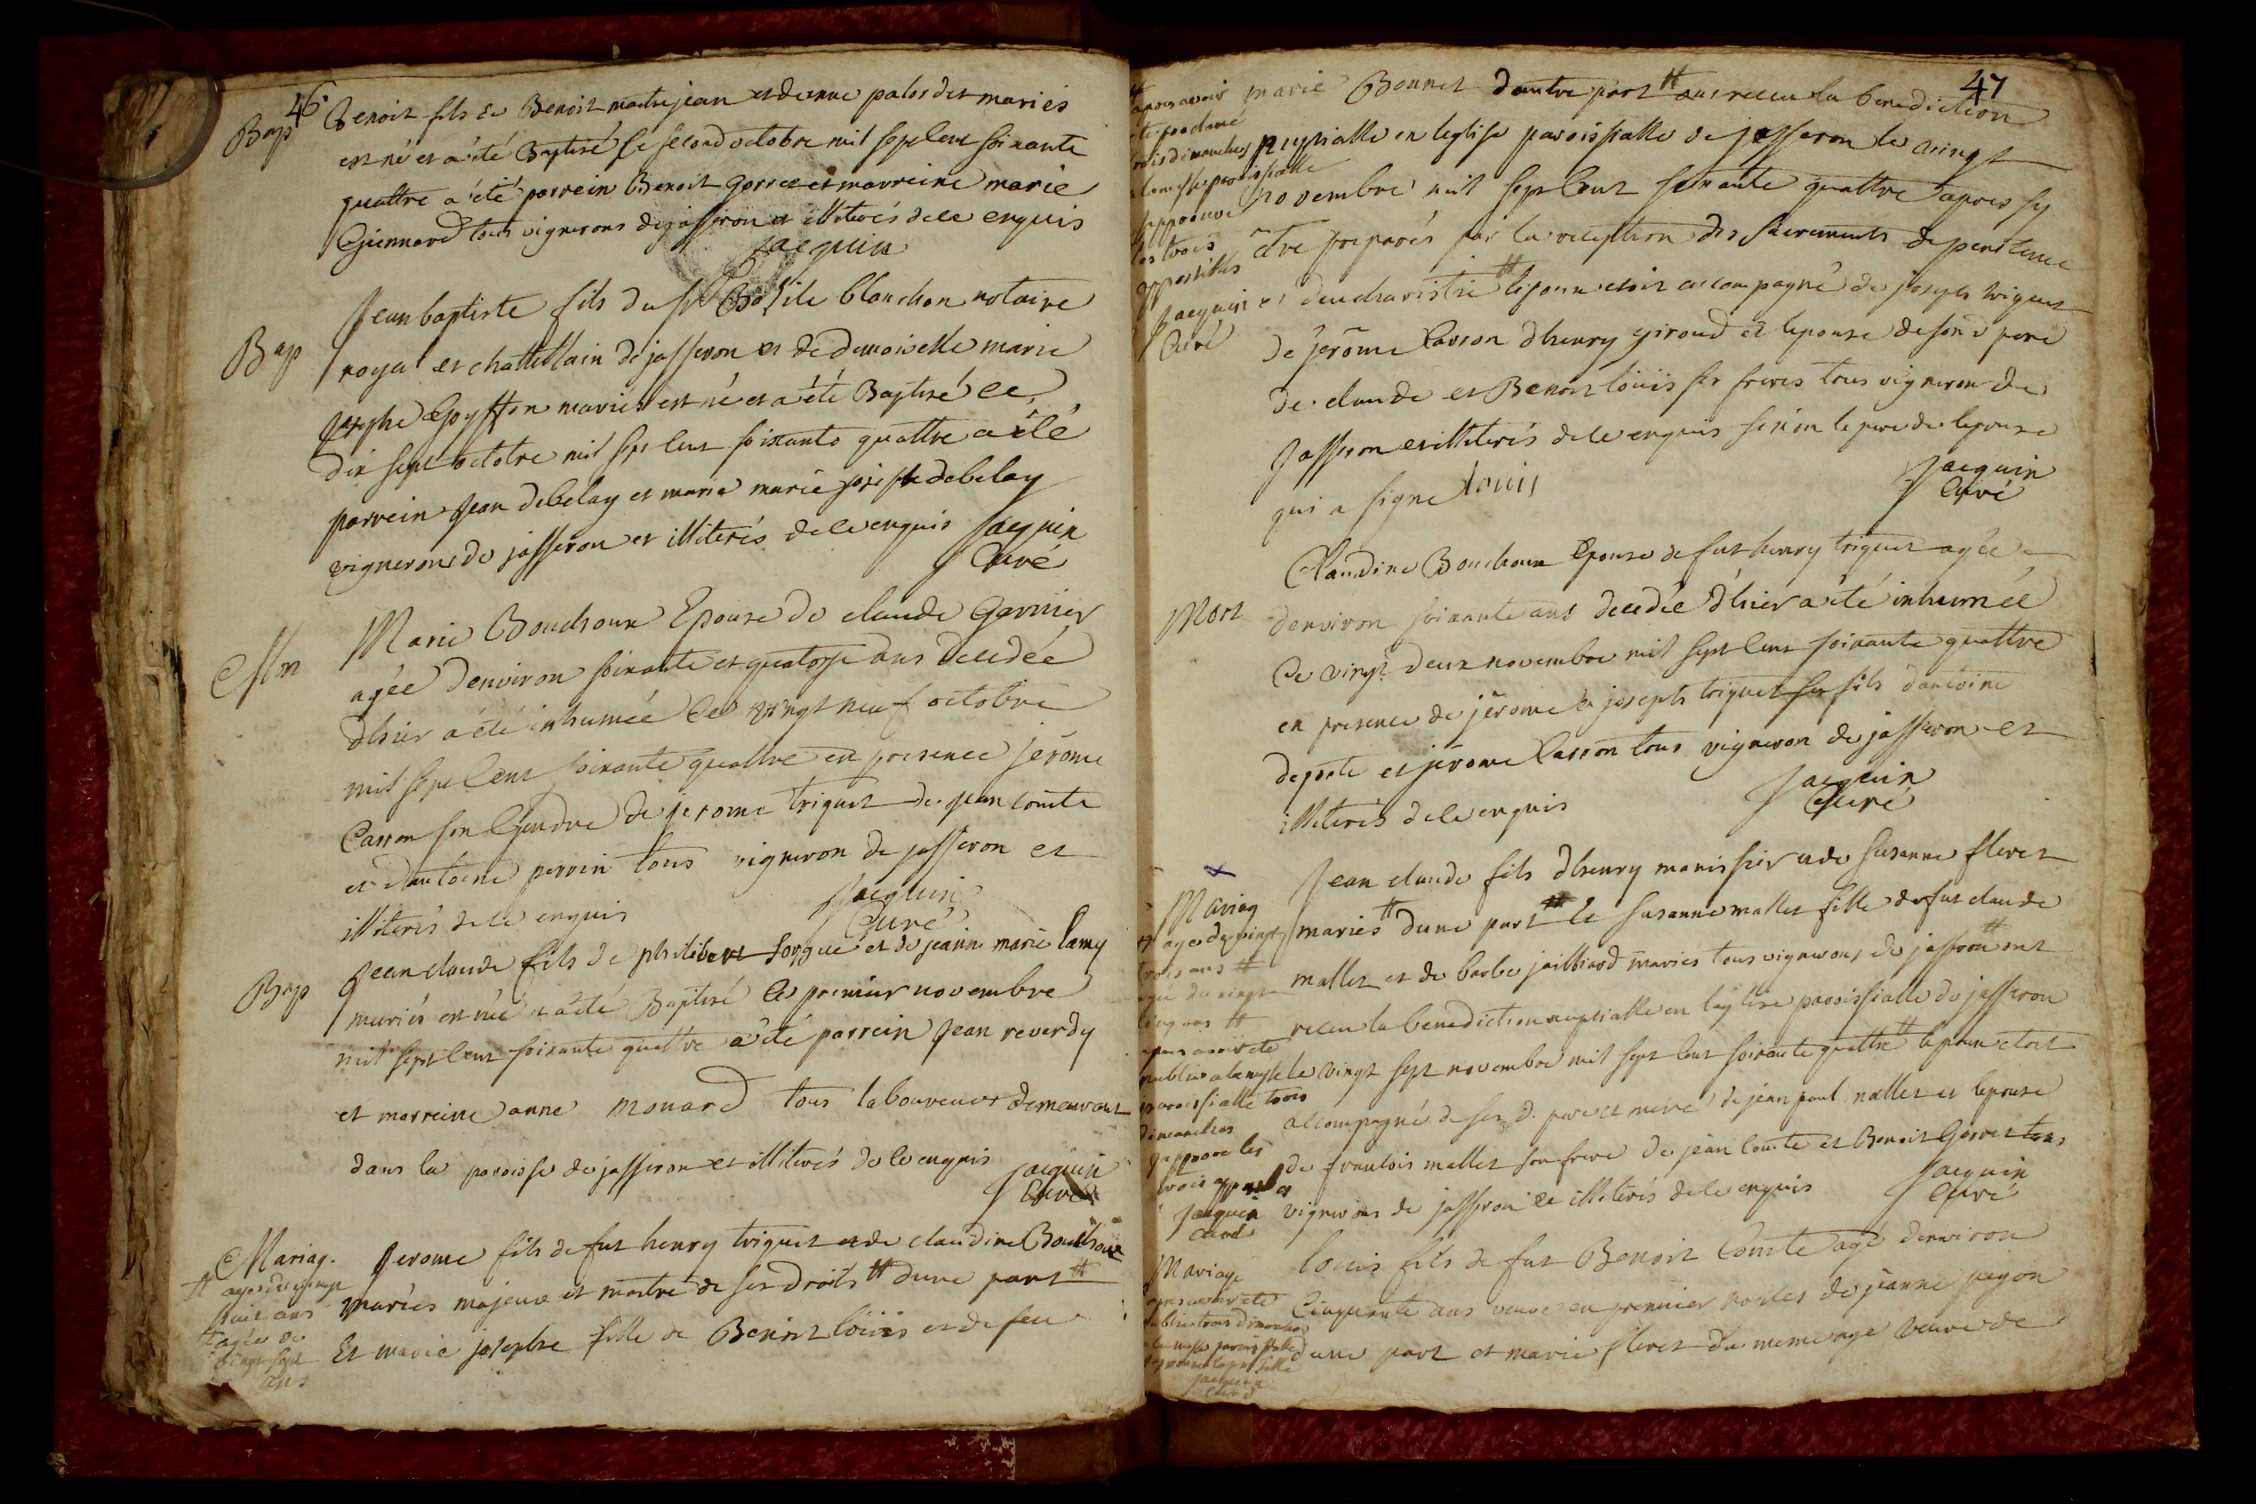 46
Bap
Benoit fils de Benoit maitrejean et denne palordet mariés
est né et a été Baptisé le second octobre mil sept cent soixante
quattre a été parrein Benoit Gorret et marreine marie
Guennard tous vignerons de jasseron et illiterés de ce enquis
Jacquin
Bap
Jean baptiste fils du sr Basile blanchon notaire
royal et chattellain de jasseron et de demoiselle marie
josephe Goyffon mariés est né et a été Baptisé ce
dix sept octobre mil sept cent soixante quattre a été
parrein Jean debelay et marie marie josephe debelay
vignerons de jasseron et illiterés de ce enquis Jacquin
Curé
Marie Bouchoux Epouse de claude Garnier
agée denviron soixante et quatorze ans decedée
dhier a été inhumée ce vingt neuf octobre
mil sept cent soixante quattre en presence jerome
Carron son Gendre de jerome triquet de jean comte
et dantoine perrin tous vigneron de jasseron et
illiterés de ce enquis Jacquin
Curé
Bap
Jean claude fils de philibert forgue et de jeanne marie lamy
mariés est né et a été Baptisé le premier novembre
mil sept cent soixante quattre a été parrein Jean reverdy
et marreine anne monard tous laboureurs demeurant
dans la paroisse de jasseron et illiterés de ce enquis
Jacquin
Curé
Mariag.
# agé de vingt
huit ans
# agée de
vingt sept
ans
Jerome fils de fut henry triquet et de claudine Bouchoux
mariés majeur et maitre de ses droits # dune part #
Et marie josephe fille de Benoit loüis et de feu
47
# apres avoir
été proclamé
trois dimanches
a la messe paroissialle
japprouve
les trois
appostilles
Jacquin
Curé
marie Bonnet dautre part # ont receu la benediction
nuptialle en leglise paroissialle de jasseron le vingt
novembre mil sept cent soixante quattre apres sy
être preparés par la reception des sacrements de penitence
et deucharistie # lepoux etoit accompagné de joseph triquet
de jerome Carron dhenry giroud et lepouse de son d pere
de claude et Benoit loüis ses freres tous vigneron de
Jasseron et illiterés de ce enquis sinon le pere de lepouse
qui a signe louis
Jacquin
Curé
Mort
Claudine Bouchoux Epouse de fut henry triquet agée
denviron soixante ans decedée dhier a été inhumée
ce vingt deux novembre mil sept cent soixante quattre
en presence de jerome et joseph triquet ses fils dantoine
deporte et jerome Carron tous vigneron de jasseron et
illiterés de ce enquis
Jacquin
Curé
Mariag
# agé de vingt
trois ans #
agée de vingt
cinq ans #
apres avoir été
publiés a la messe
paroissialle trois
dimanches
japprove les
trois appostilles
Jacquin
Curé
Jean claude fils dhenry manissier et de susanne fleret
mariés # dune part # et susanne mallet fille de fut claude
mallet et de barbe jailliard mariés tous vignerons de jasseron # ont
receu la benediction nuptialle en leglise paroissialle de jasseron
le vingt sept novembre mil sept cent soixante quattre # lepoux etoit
accompagné de ses d. pere et mere de jean paul mallet et lepouse
de francois mallet son frere de jean Comte et Benoit Gorret tous
vignerons de jasseron et illiterés de ce enquis
Jacquin
Curé
Mariage
apres avoir été
publiés trois dimanches
a la messe paroissialle
Jacquin
Curé
loüis fils de fut Benoit Comte agé denviron
Cinquante ans veuf en premier noces de jeanne pegon
dune part et marie fleret du meme age veuve de